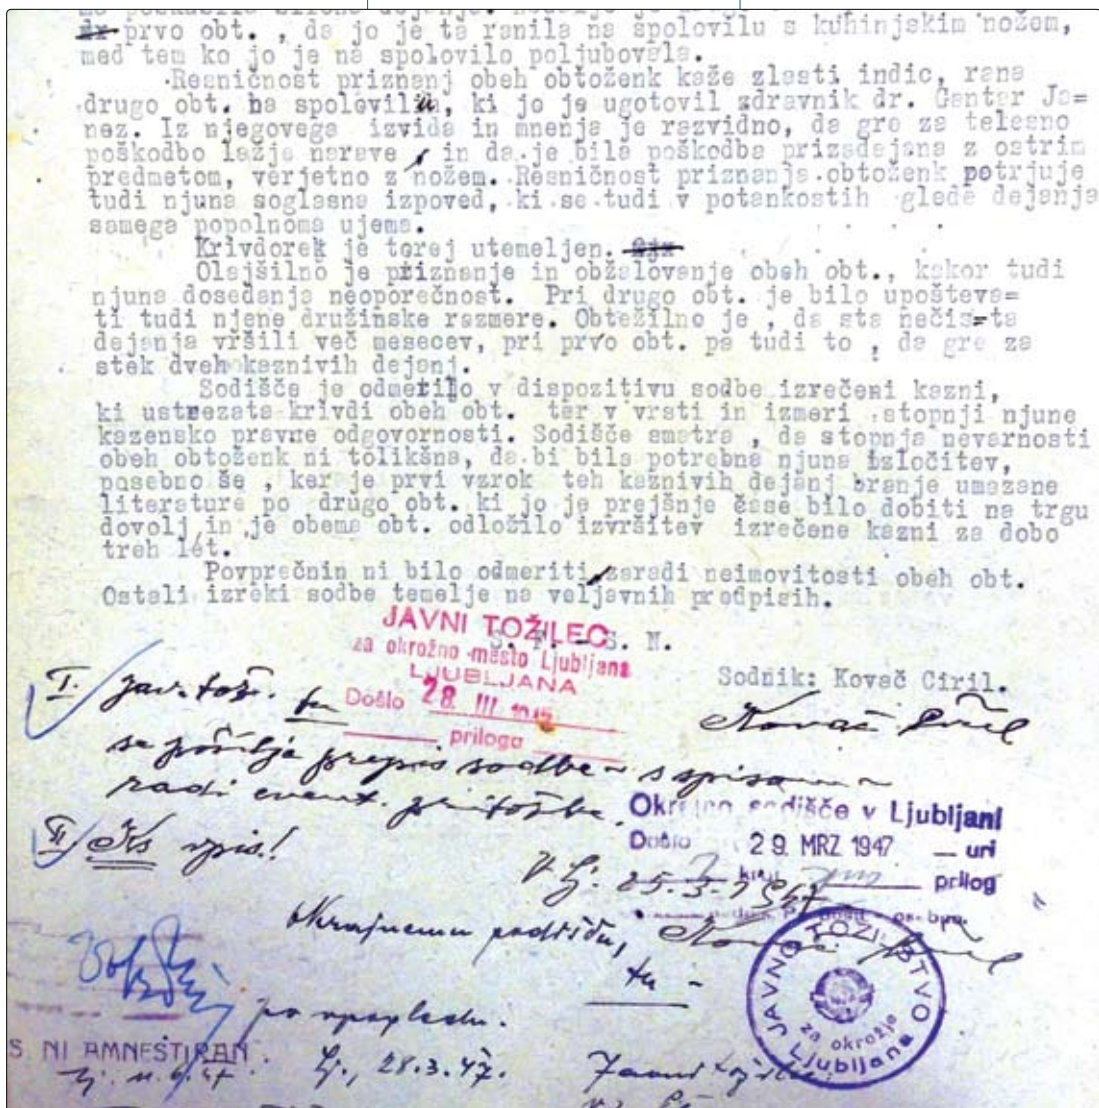 prvo obt. , da jo je ta ranila na spolovilu s kuhinjskim nožem,
med tem ko jo je na spolovilo poljubovala.
Resničnost priznanj obeh obtoženk kaže zlasti indic, rana
drugo obt. na spolovilu, ki jo je ugotovil zdravnik dr. Gantar Ja=
nez. Iz njegovega izvida in mnenja je razvidno, da gre za telesno
poškodbo lažje narave, in da je bila poškodba prizadejana z ostrim
predmetom, verjetno z nožem. Resničnost priznanja obtoženk potrjuje
tudi njuna soglasna izpoved, ki se tudi v potankostih glede dejanja
samega popolnoma ujema.
Krivdorek je torej utemeljen.
Olajšilno je priznanje in obžalovanje obeh obt., kakor tudi
njuna dosedanja neoporečnost. Pri drugo obt. je bilo upošteva=
ti tudi njene družinske razmere. Obtežilno je , da sta nečista
dejanja vršili več mesecev, pri prvo obt. pa tudi to , da gre za
stek dveh kaznivih dejanj.
Sodišče je odmerilo v dispozitivu sodbe izrečeni kazni,
ki ustrezata krivdi obeh obt. ter v vrsti in izmeri stopnji njune
kazensko pravne odgovornosti. Sodišče smatra , da stopnja nevarnosti
obeh obtoženk ni tolikšna, da bi bila potrebna njuna izločitev,
posebno še , ker je prvi vzrok teh kaznivih dejanj branje umazane
literature po drugo obt. ki jo je prejšnje čase bilo dobiti na trgu
dovolj, in je obema obt. odložilo izvršitev izrečene kazni za dobo
treh let.
Povprečnin ni bilo odmeriti, zaradi neimovitosti obeh obt.
Ostali izreki sodbe temelje na veljavnih predpisih.
S. F. - S. N.
JAVNI TOŽILEC
za okrožno mesto Ljubljana
LJUBLJANA
Došlo 28. III.
priloga
Sodnik: Kovač Ciril.
Kovač Ciril
I. Jav. tož. tu
se pošilja prepis sodbe s spisom
radi event. pritožbe.
II. Ks vpis!
Okrajno sodišče v Ljubljani
Došlo 29. MRZ 1947 uri
prilog
V Lj. 25.3.1947
Okrajnemu sodišču,
tu -
po vpogledu.
S. NI AMNESTIRAN.
Lj., 28.3.47.
Javni tožilec
JAVNO TOŽILSTVO
za okrožje
Ljubljana